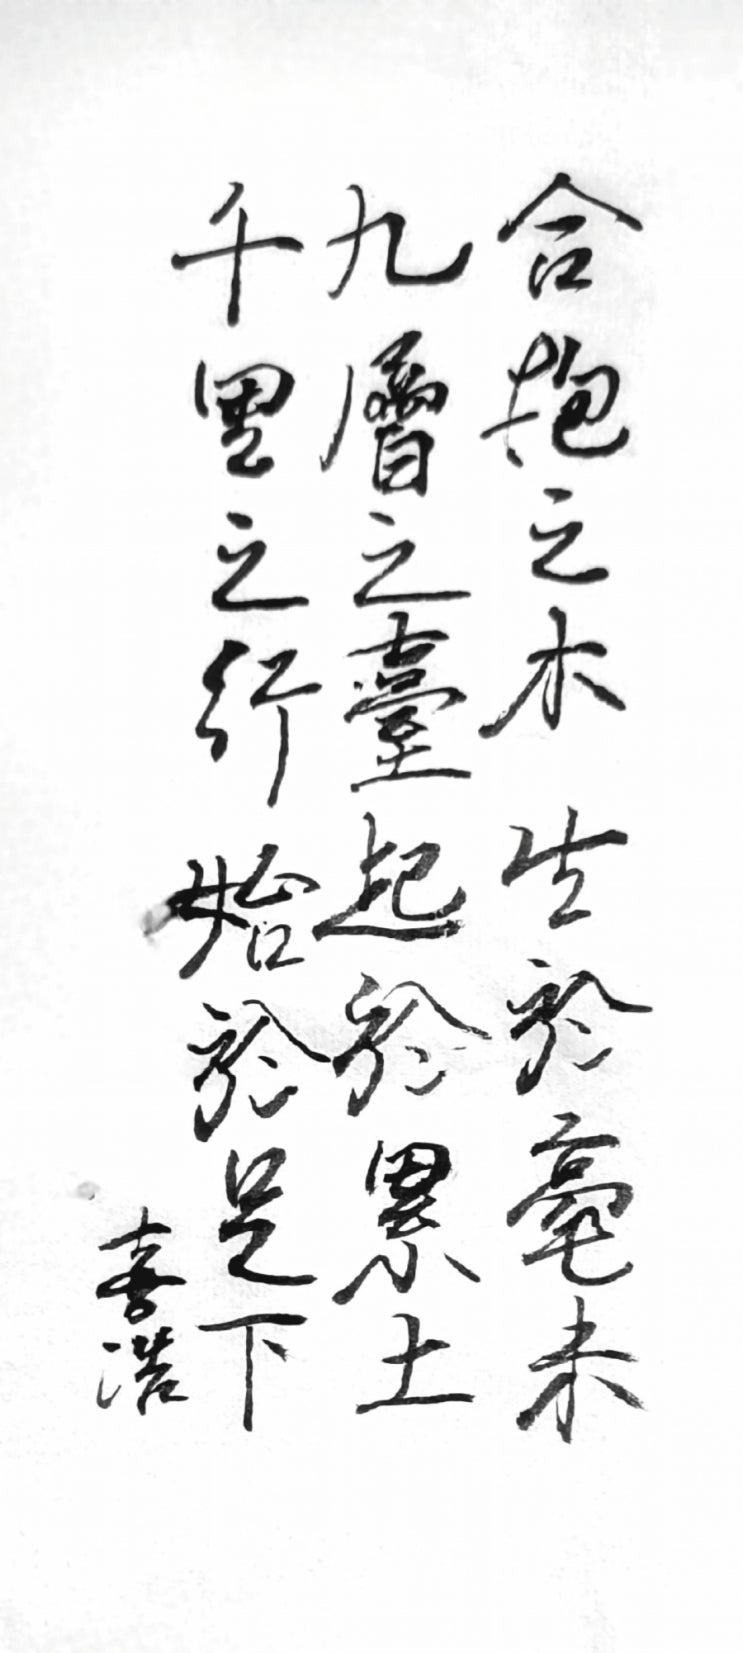 合抱之木生於毫末
九層之臺起於累土
千里之行始於足下
喜浩